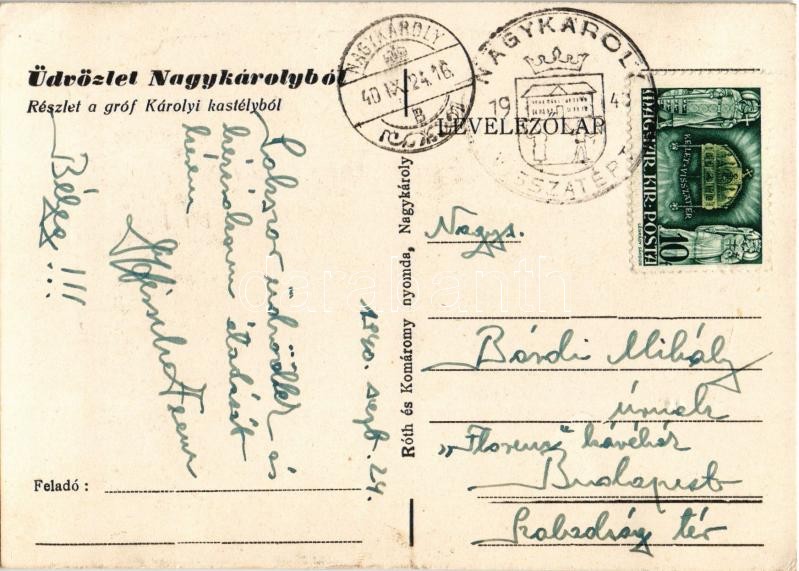 Üdvözlet Nagykárolyból
Részlet a gróf Károlyi kastélyból
NAGYKÁROLY
40 IX 24. 16
B
NAGYKÁROLY
19 40
VISSZATÉRT
LEVELEZŐLAP
KELET VISSZATÉR
MAGYAR KIR. POSTA
10f
Bélyeg !!!
és
átadását
kérem
1940. szept. 24.
Róth és Komáromy nyomda, Nagykároly
Nagys.
Bárdi Mihály
úrnak
„Florenz" kávéház
Budapest
Szabadság tér
Feladó :
darabanth